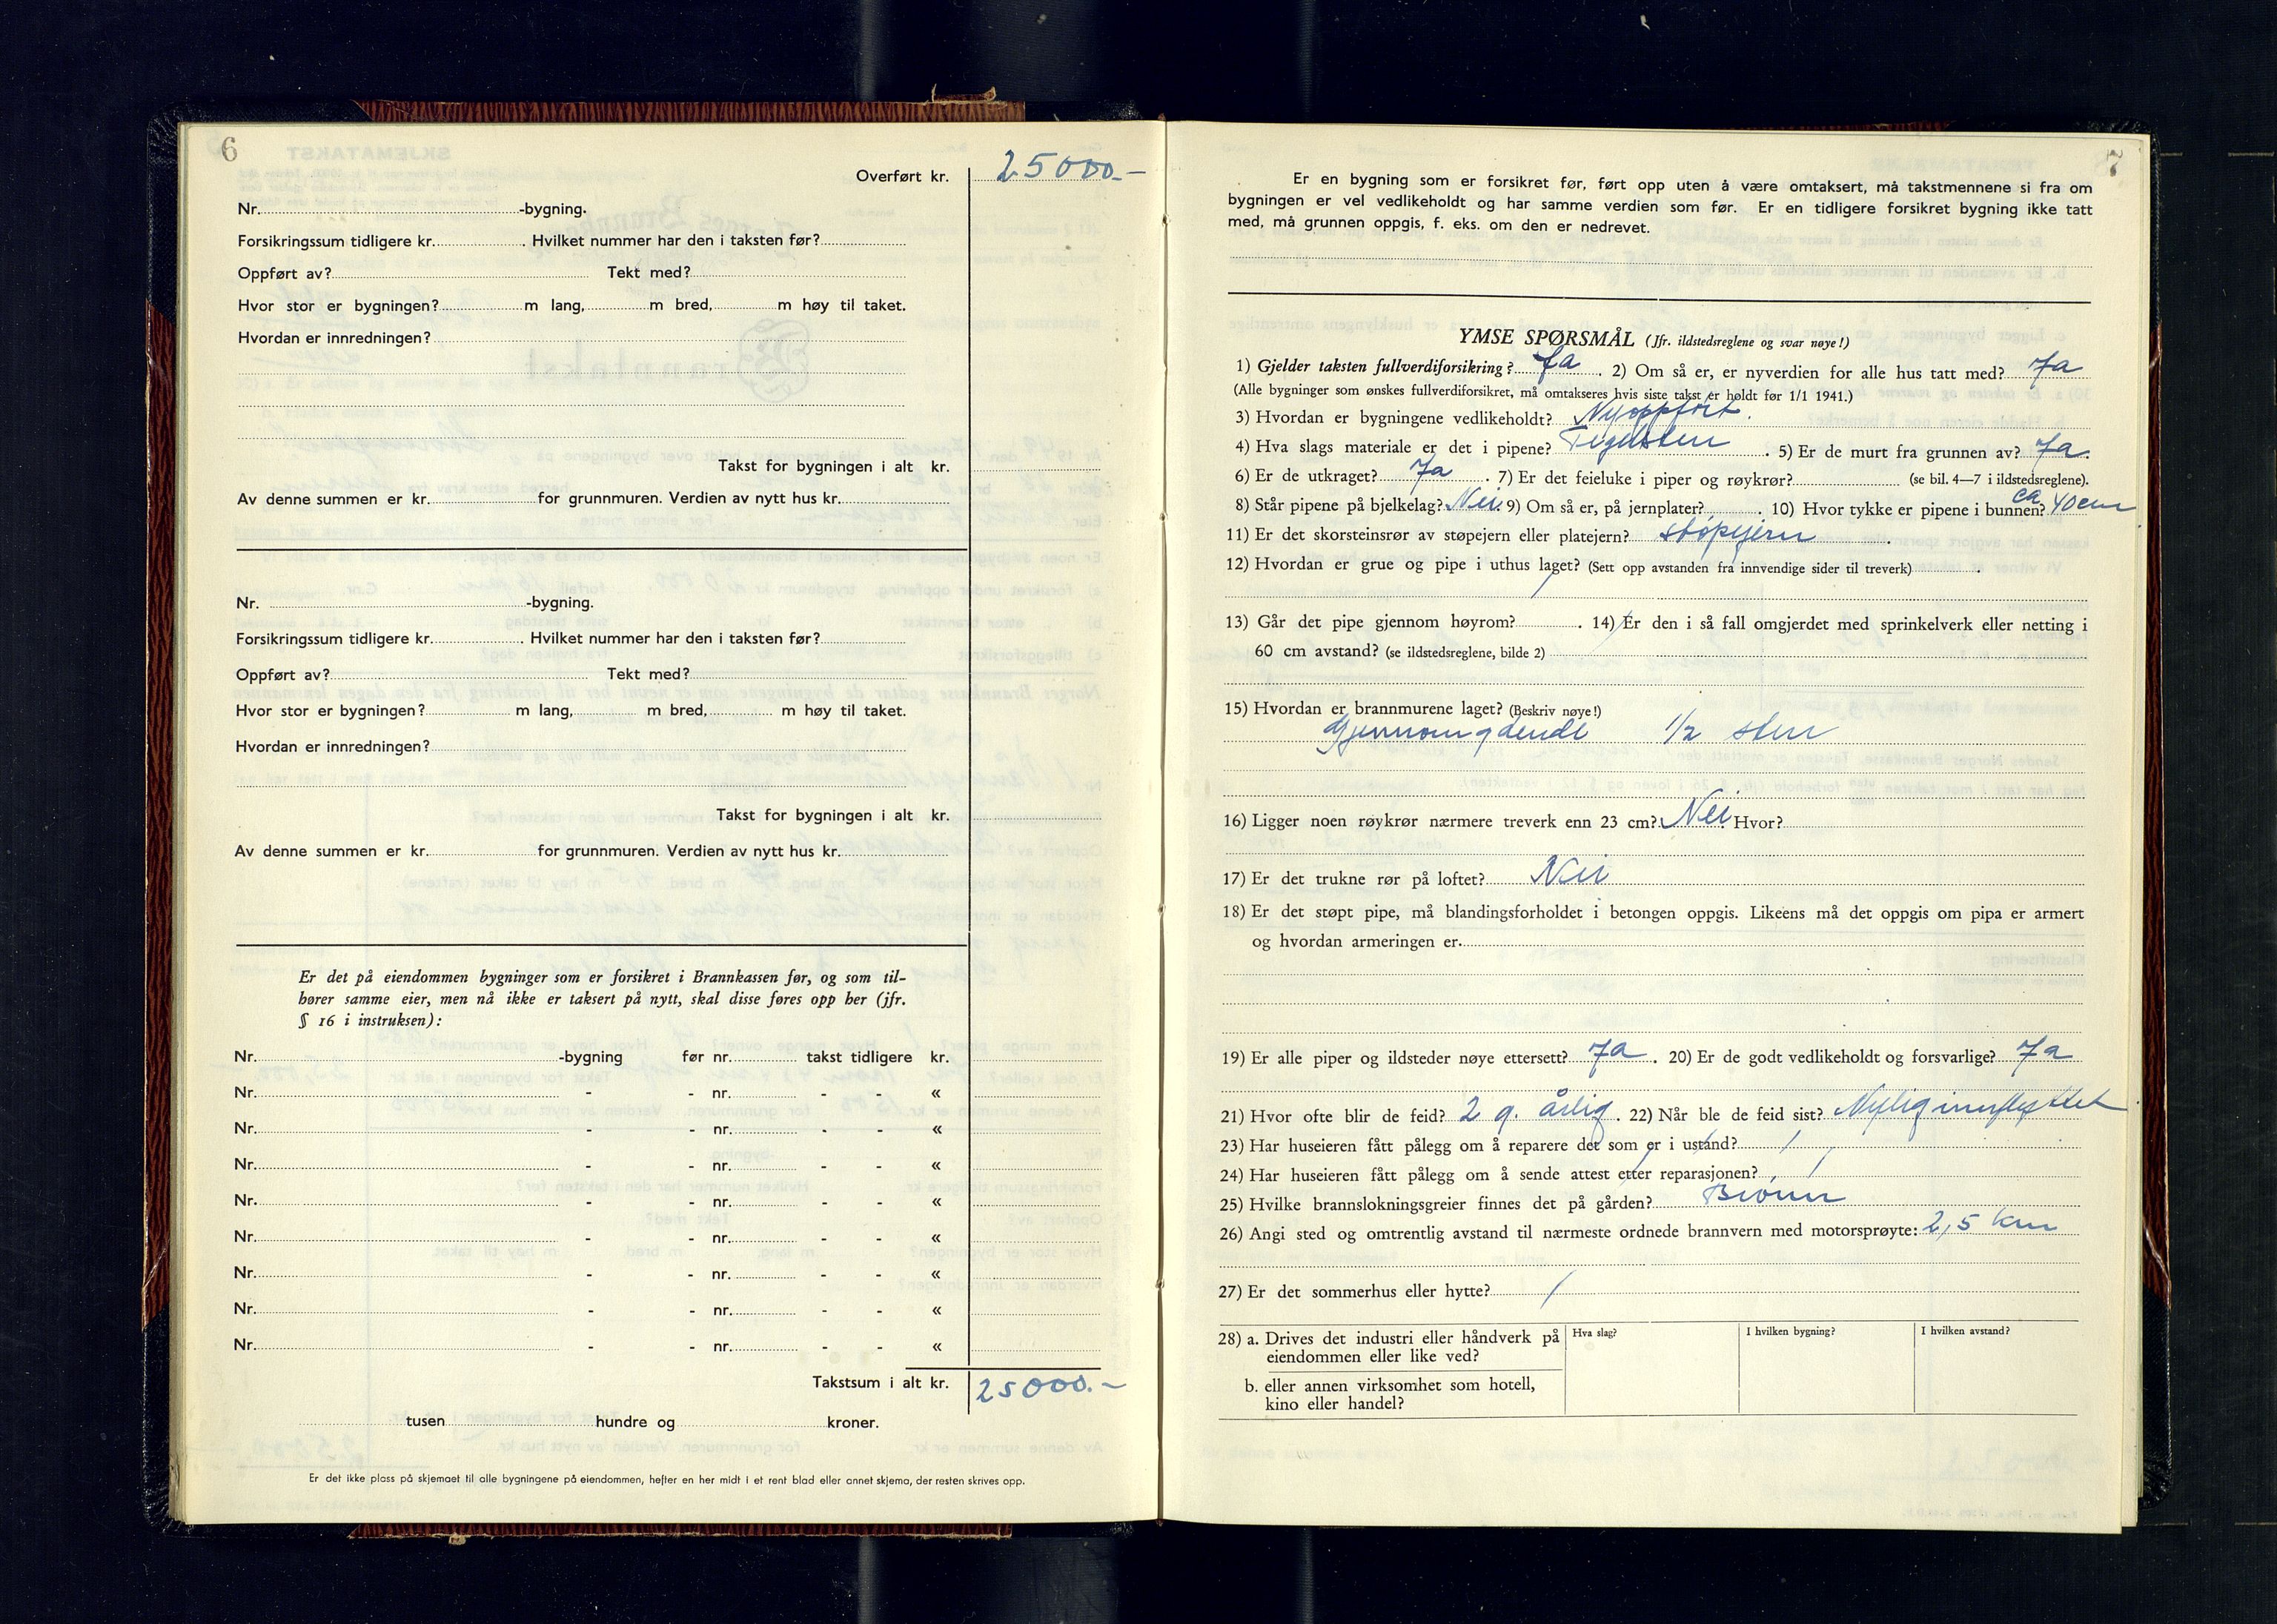 6
Overført kr. 25000.-
Nr. -bygning.
Forsikringssum tidligere kr. . Hvilket nummer har den i taksten før?
Oppført av? Tekt med?
Hvor stor er bygningen? m lang, m bred, m høy til taket.
Hvordan er innredningen?
Takst for bygningen i alt kr.
Av denne summen er kr. for grunnmuren. Verdien av nytt hus kr.
Nr. -bygning.
Forsikringssum tidligere kr. . Hvilket nummer har den i taksten før?
Oppført av? Tekt med?
Hvor stor er bygningen? m lang, m bred, m høy til taket.
Hvordan er innredningen?
Takst for bygningen i alt kr.
Av denne summen er kr. for grunnmuren. Verdien av nytt hus kr.
Er det på eiendommen bygninger som er forsikret i Brannkassen før, og som til-
hører samme eier, men nå ikke er taksert på nytt, skal disse føres opp her (jfr.
§ 16 i instruksen):
Nr. -bygning før nr. takst tidligere kr.
Nr. - - nr. - - «
Nr. - - nr. - - «
Nr. - - nr. - - «
Nr. - - nr. - - «
Nr. - - nr. - - «
Nr. - - nr. - - «
Nr. - - nr. - - «
Nr. - - nr. - - «
Takstsum i alt kr. 25000.-
tusen hundre og kroner.
Er det ikke plass på skjemaet til alle bygningene på eiendommen, hefter en her midt i et rent blad eller annet skjema, der resten skrives opp.
7
Er en bygning som er forsikret før, ført opp uten å være omtaksert, må takstmennene si fra om
bygningen er vel vedlikeholdt og har samme verdien som før. Er en tidligere forsikret bygning ikke tatt
med, må grunnen oppgis, f. eks. om den er nedrevet.
YMSE SPØRSMÅL (Jfr. ildstedsreglene og svar nøye!)
1) Gjelder taksten fullverdiforsikring? Ja . 2) Om så er, er nyverdien for alle hus tatt med? Ja
(Alle bygninger som ønskes fullverdiforsikret, må omtakseres hvis siste takst er holdt før 1/1 1941.)
3) Hvordan er bygningene vedlikeholdt? Nyoppført.
4) Hva slags materiale er det i pipene? Teglsten . 5) Er de murt fra grunnen av? Ja.
6) Er de utkraget? Ja . 7) Er det feieluke i piper og røykrør? (se bil. 4—7 i ildstedsreglene).
8) Står pipene på bjelkelag? Nei. 9) Om så er, på jernplater? . 10) Hvor tykke er pipene i bunnen? ca 40 cm
11) Er det skorsteinsrør av støpejern eller platejern? støpejern .
12) Hvordan er grue og pipe i uthus laget? (Sett opp avstanden fra innvendige sider til treverk) .
/
13) Går det pipe gjennom høyrom? . 14) Er den i så fall omgjerdet med sprinkelverk eller netting i
60 cm avstand? (se ildstedsreglene, bilde 2)
15) Hvordan er brannmurene laget? (Beskriv nøye!)
Gjennomgående 1/2 sten
16) Ligger noen røykrør nærmere treverk enn 23 cm? Nei Hvor?
17) Er det trukne rør på loftet? Nei
18) Er det støpt pipe, må blandingsforholdet i betongen oppgis. Likeens må det oppgis om pipa er armert
og hvordan armeringen er.
19) Er alle piper og ildsteder nøye ettersett? Ja . 20) Er de godt vedlikeholdt og forsvarlige? Ja
21) Hvor ofte blir de feid? 2 g. årlig . 22) Når ble de feid sist? Nylig innflyttet
23) Har huseieren fått pålegg om å reparere det som er i ustand? /
24) Har huseieren fått pålegg om å sende attest etter reparasjonen? /
25) Hvilke brannslokningsgreier finnes det på gården? Brønn
26) Angi sted og omtrentlig avstand til nærmeste ordnede brannvern med motorsprøyte: 2,5 km
27) Er det sommerhus eller hytte? /
28) a. Drives det industri eller håndverk på Hva slag? I hvilken bygning? I hvilken avstand?
eiendommen eller like ved?
b. eller annen virksomhet som hotell,
kino eller handel?